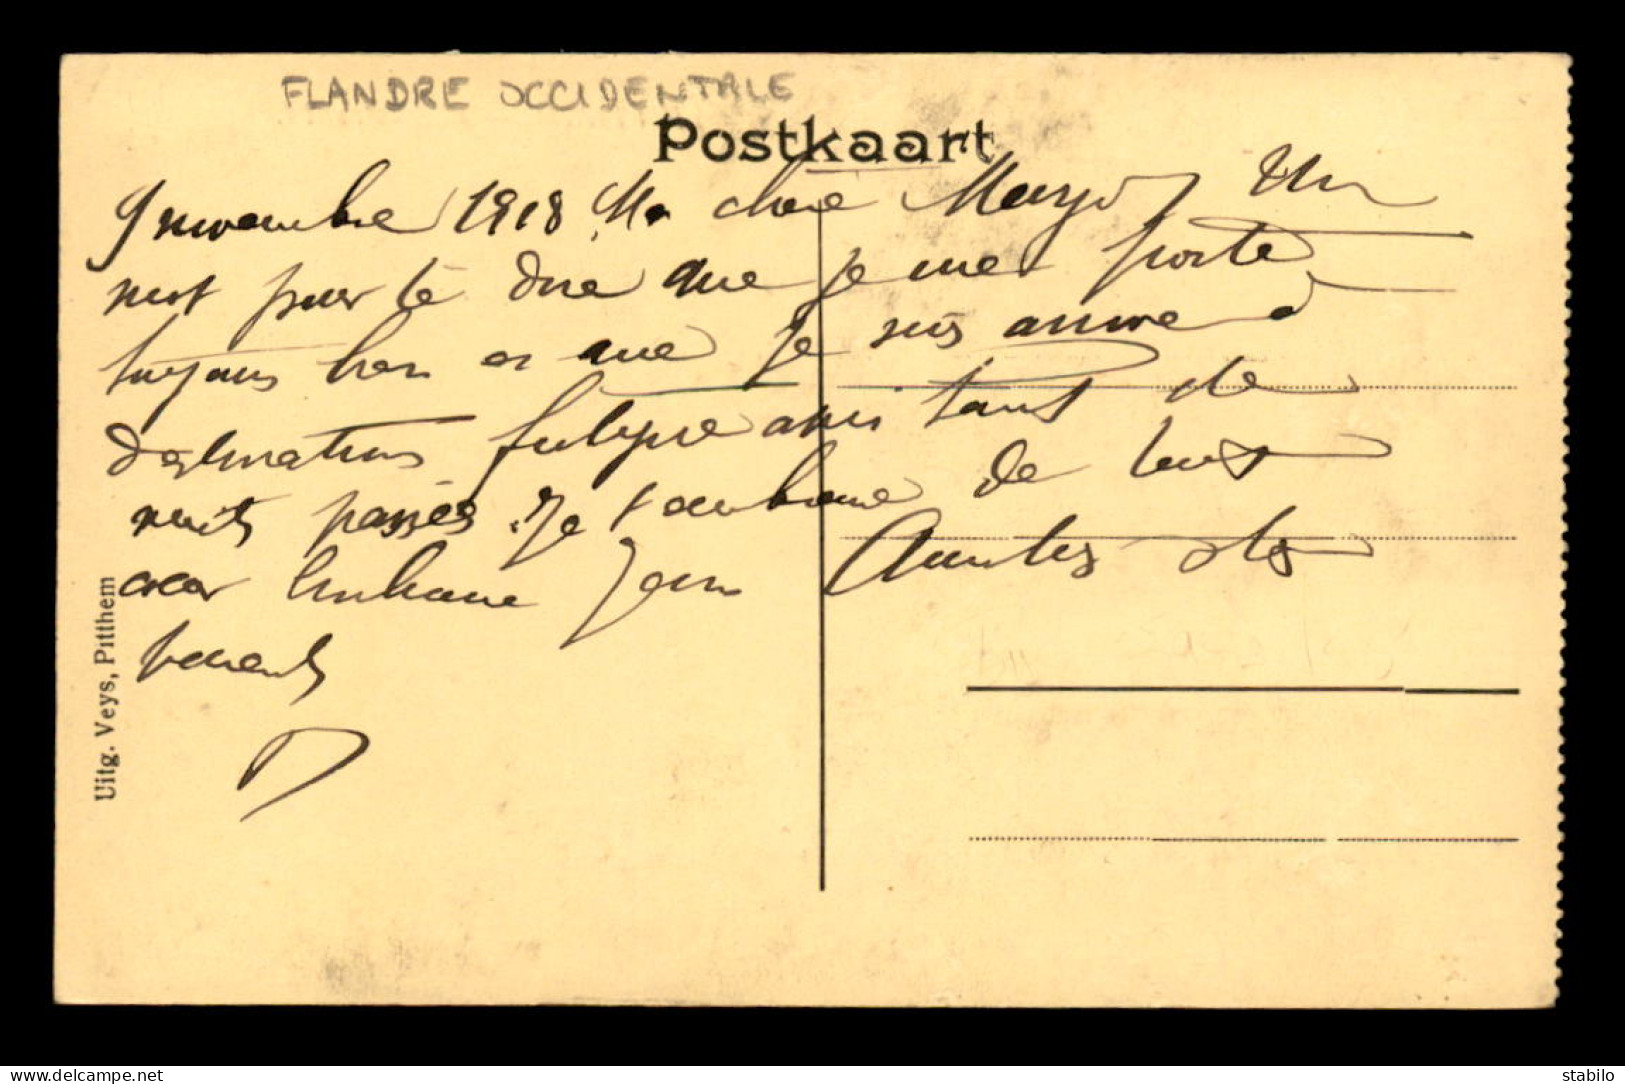 FLANDRE OCCIDENTALE
Postkaart
9 novembre 1918 Ma chère Un
mot pour te dire que je me porte
toujours bien et que je suis arrivé à
destination fatigué après tant de
nuits passés. Je t'embrasse de tout
cœur Jean
parents
Uitg. Veys, Pitthem
delcampe.net
stabilo